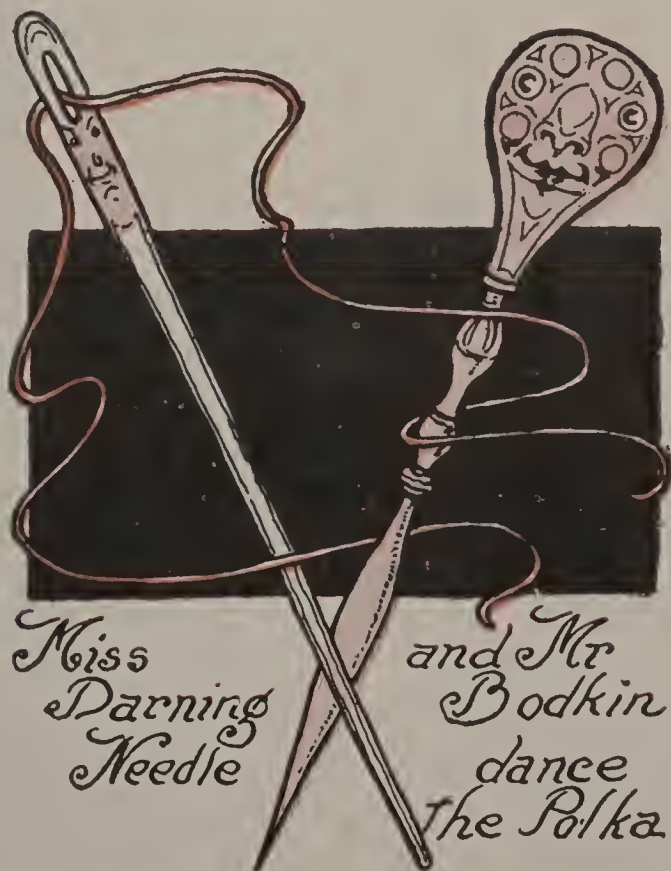 Miss
Darning
Needle
and Mr
Bodkin
dance
the Polka